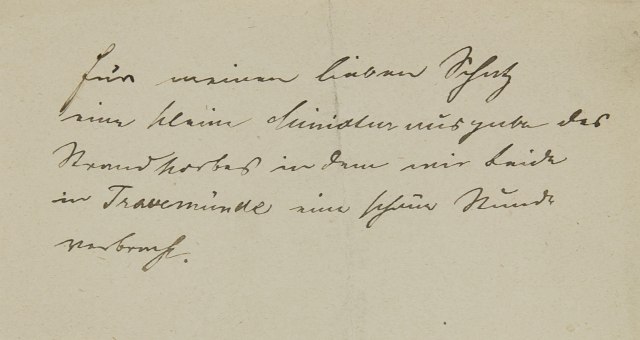 für meinen lieben Schatz
eine kleine Miniaturausgabe des
Strandkorbes in dem wir beide
in Travemünde eine schöne Stunde
verbracht.